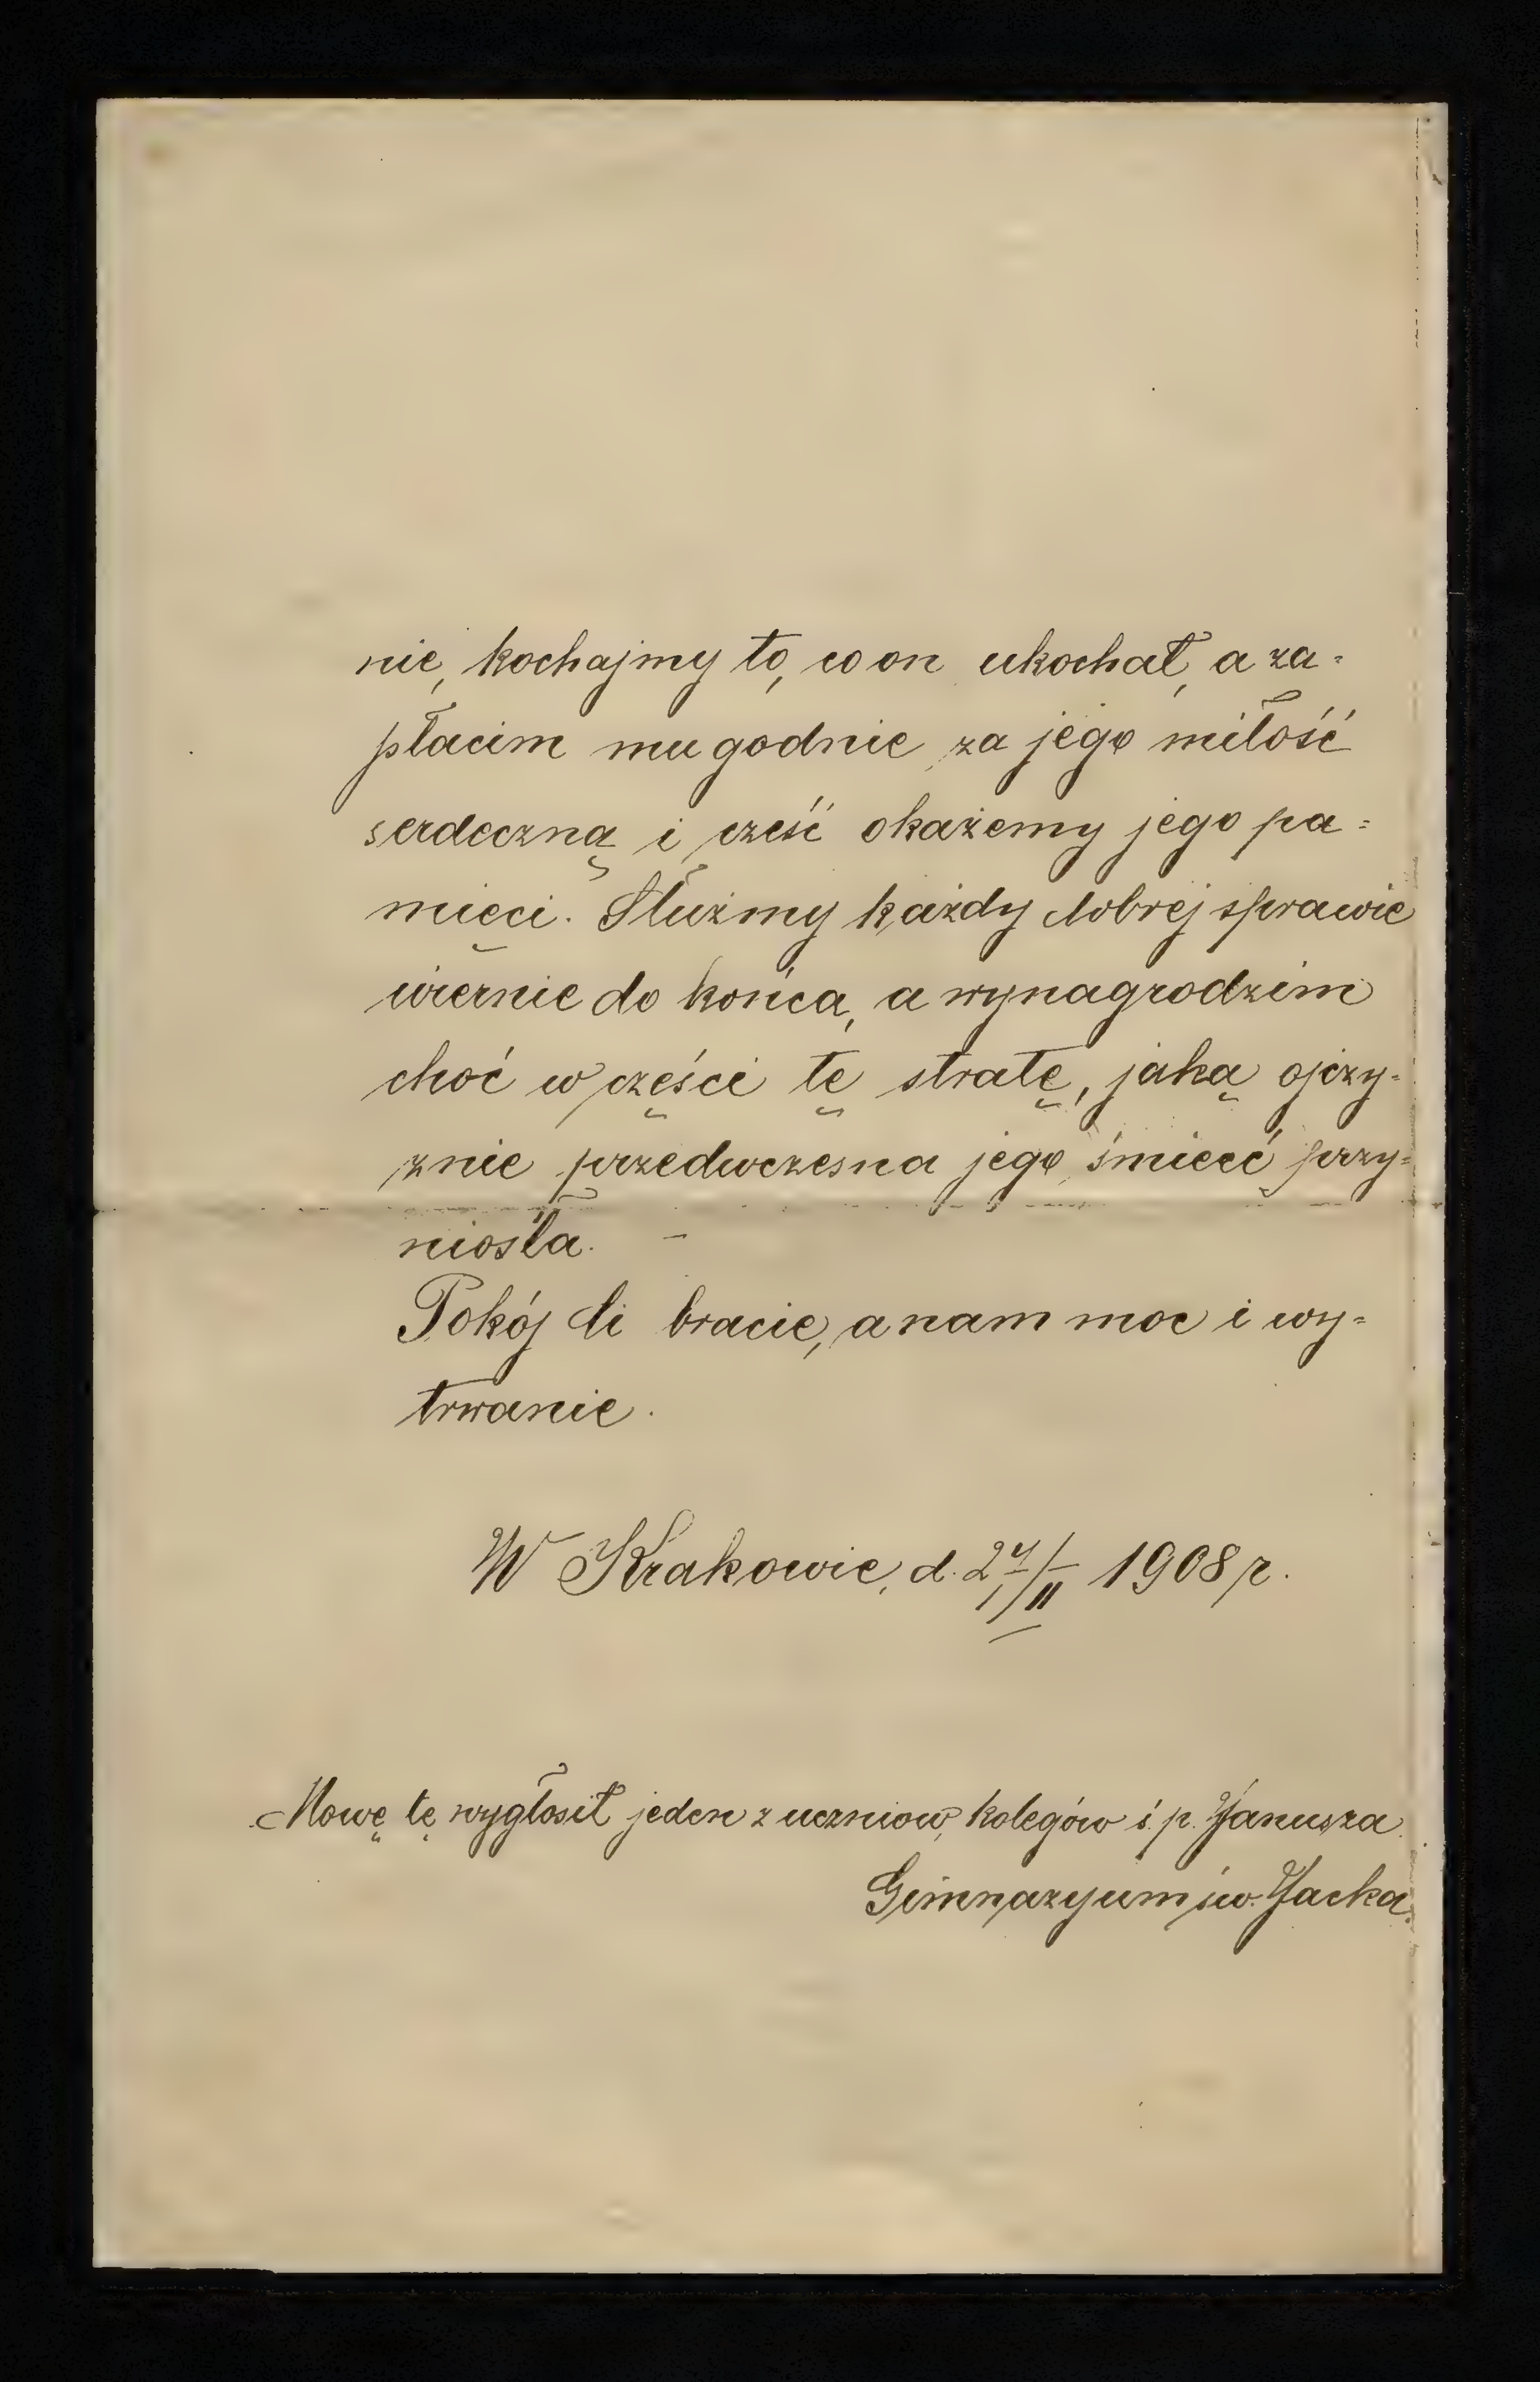 nie, kochajmy to, co on ukochał, a za=
płacim mu godnie za jego miłość
serdeczną i cześć okażemy jego pa=
mięci. Służmy każdy dobrej sprawie
wiernie do końca, a wynagrodzim
choć w części tę stratę, jaką ojczy=
znie przedwczesna jego śmierć przy=
niosła. –
Pokój Ci bracie, a nam moc i wy=
trwanie.
W Krakowie, d. 24/II 1908 r.
Mowę tę wygłosił jeden z uczniow, kolegów ś. p. Janusza
Gimnazyum św. Jacka.